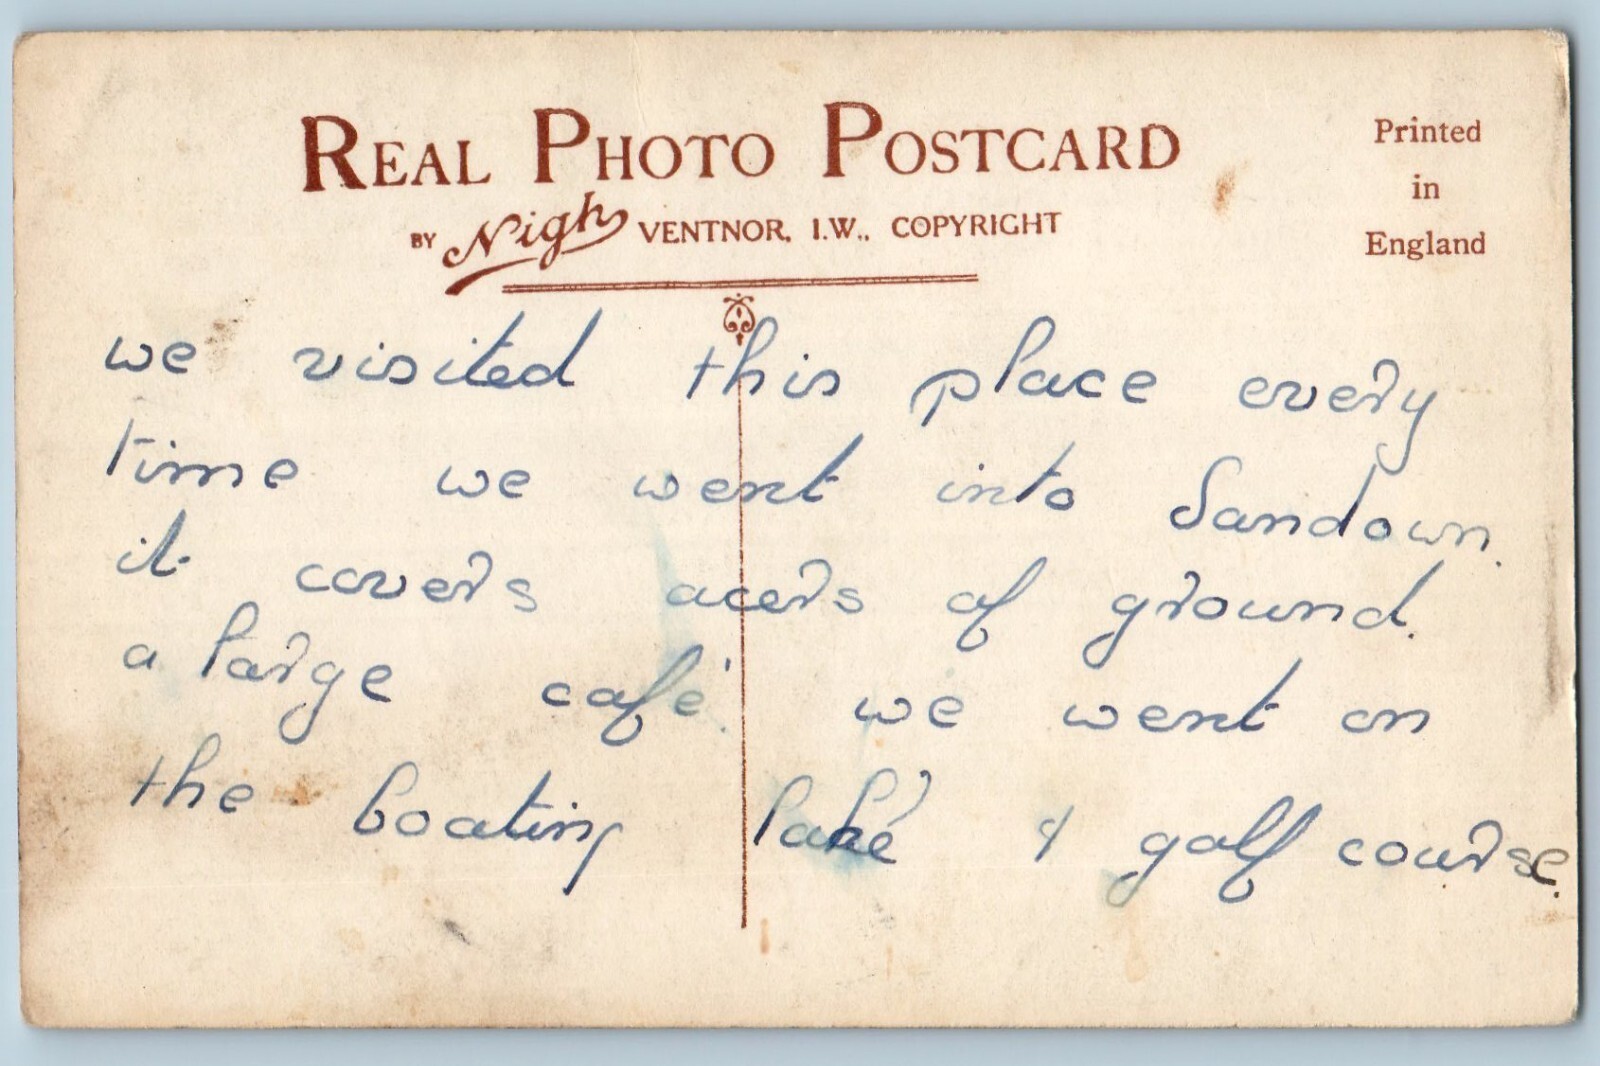 REAL PHOTO POSTCARD
BY Nigh VENTNOR, I.W., COPYRIGHT
Printed
in
England
we visited this place every
time we went into Sandown.
it covers acers of ground.
a large café. we went on
the boating lake & golf course.